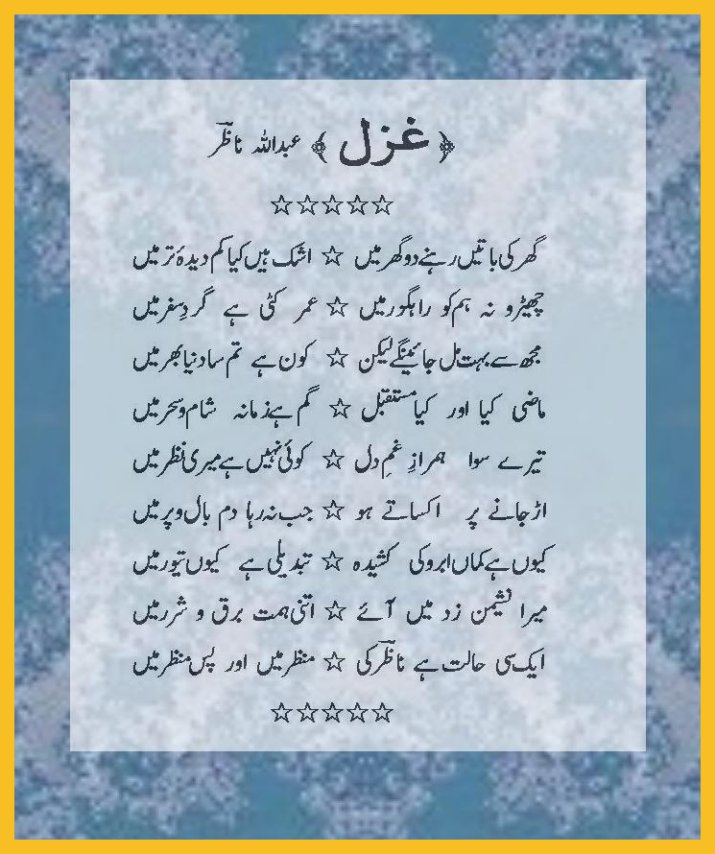 ﴿ غزل ﴾ عبداللہ ناظرؔ
☆☆☆☆☆
گھر کی باتیں رہنے دو گھر میں ☆ اشک ہیں کیا کم دیدۂ تر میں
چھیڑو نہ ہم کو راہگور میں ☆ عمر کٹی ہے گردِ سفر میں
مجھ سے بہت مل جائینگے لیکن ☆ کون ہے تم سا دنیا بھر میں
ماضی کیا اور کیا مستقبل ☆ گم ہے زمانہ شام و سحر میں
تیرے سوا ہمرازِ غمِ دل ☆ کوئی نہیں ہے میری نظر میں
اڑ جانے پر اکساتے ہو ☆ جب نہ رہا دم بال و پر میں
کیوں ہے کماں ابرو کی کشیدہ ☆ تبدیلی ہے کیوں تیور میں
میرا نشیمن زد میں آئے ☆ اتنی ہمت برق و شرر میں
ایک سی حالت ہے ناظرؔ کی ☆ منظر میں اور پس منظر میں
☆☆☆☆☆